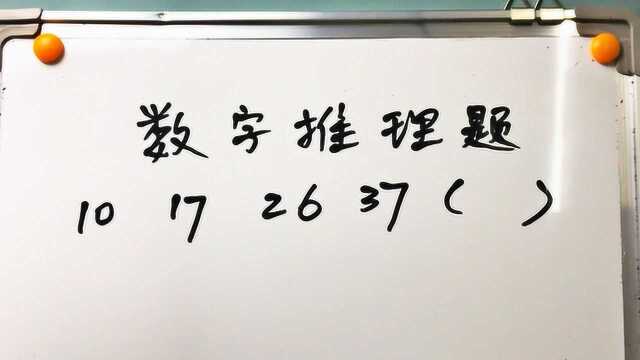 数字推理题
10 17 26 37 ( )